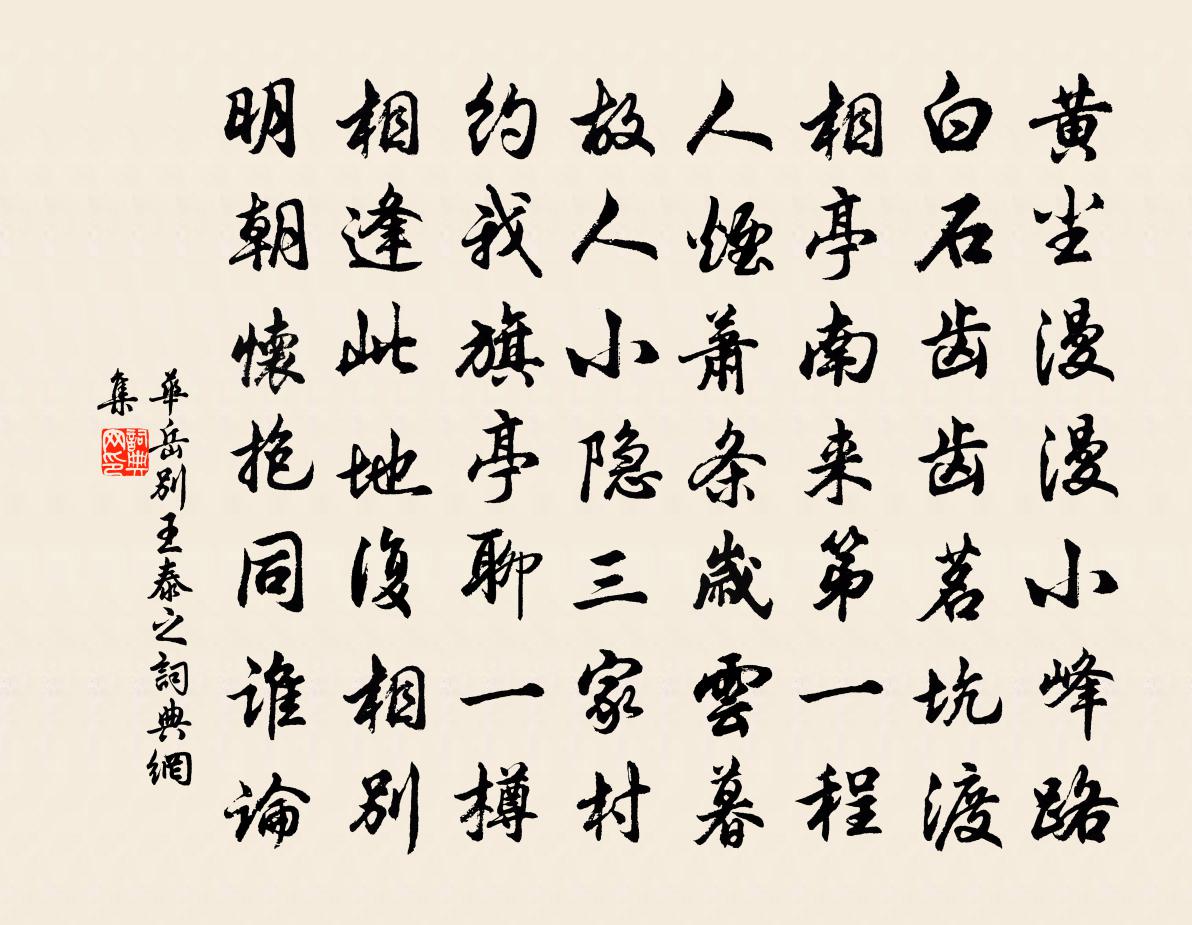 黄尘漫漫小峰路
白石齿齿茗坑渡
相亭南来第一程
人煙萧条歲雲暮
故人小隐三家村
约我旗亭聊一樽
相逢此地復相别
明朝懷抱同谁论
華岳别王泰之詞典網
集
詞典网印